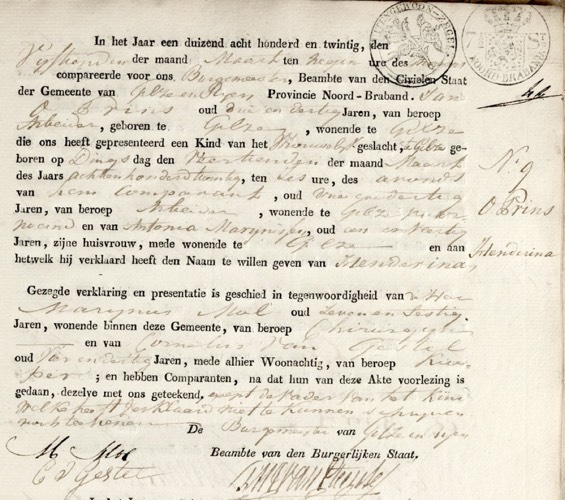 In het Jaar een duizend acht honderd en twintig, den
Vijftienden der maand Maart ten negen ure des
compareerde voor ons, Burgemeester, Beambte van den Civielen Staat
der Gemeente van Gilze en Rijen Provincie Noord-Braband. Jan
O Prins oud drie en dertig Jaren, van beroep
Arbeider, geboren te Gilze, wonende te Gilze
die ons heeft gepresenteerd een Kind van het Vrouwelijk geslacht, te Gilze ge-
boren op Dingsdag den Veertienden der maand Maart
des Jaars achttienhonderdtwintig, ten zes ure, des avonds
van hem Comparant, oud drie en dertig
Jaren, van beroep Arbeider, wonende te Gilze
en van Antonia oud en
Jaren, zijne huisvrouw, mede wonende te Gilze en aan
hetwelk hij verklaard heeft den Naam te willen geven van Henderina
Gezegde verklaring en presentatie is geschied in tegenwoordigheid van
Marijnus Mol oud Zeven en Zestig
Jaren, wonende binnen deze Gemeente, van beroep Chirurgijn
en van Cornelis van Gestel
oud en dertig Jaren, mede alhier Woonachtig, van beroep Kui-
per; en hebben Comparanten, na dat hun van deze Akte voorlezing is
gedaan, dezelve met ons geteekend, de vader van het kind
welke heeft verklaard niet te kunnen schrijven
noch teekenen De Burgemeester van Gilze en Rijen
Beambte van den Burgerlijken Staat.
M Mol
C V Gestel
N. 9
O Prins
Henderina
NOORD-BRABAND
In het Jaar